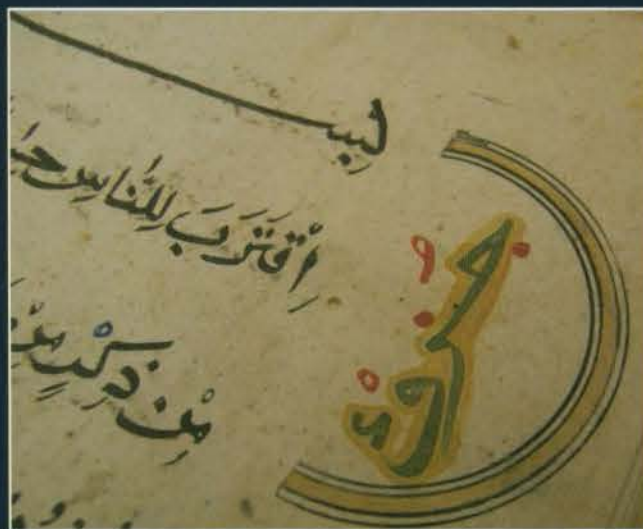 بسـ
اِقْتَرَبَ لِلنَّاسِ حِسَـ
مِنْ ذِكْرٍ مِنْ
جُزْء